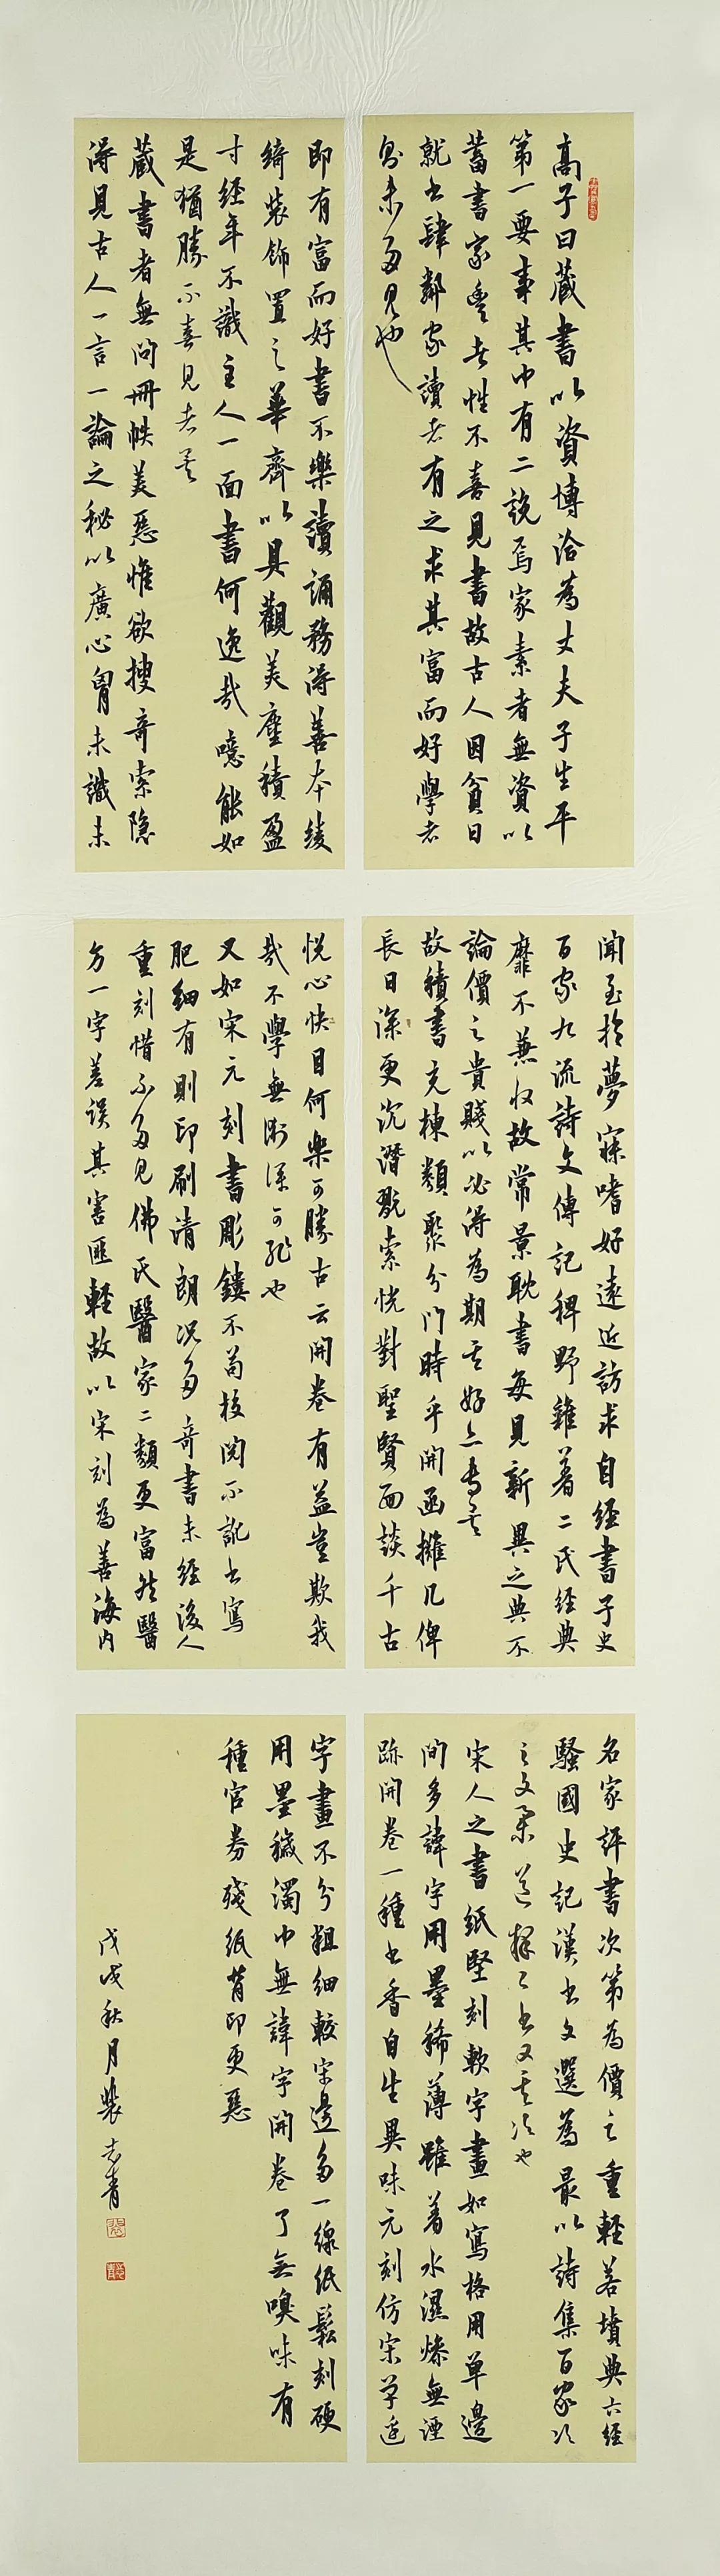 高子曰藏書以資博洽為丈夫子生平
第一要事其中有二說焉家素者無資以
蓄書家豐者性不喜見書故古人因貧日
就書肆鄰家讀者有之求其富而好學者
則未多見也
即有富而好書不樂讀誦務得善本綾
綺裝飾置之華齋以具觀美塵積盈
寸經年不識主人一面書何逸哉噫能如
是猶勝不喜見者矣
藏書者無問冊帙美惡惟欲搜奇索隱
得見古人一言一論之秘以廣心胸未識未
聞至於夢寐嗜好遠近訪求自經書子史
百家九流詩文傳記稗野雜著二氏經典
靡不兼收故常景耽書每見新異之典不
論價之貴賤以必得為期其好亦專矣
故積書充棟類聚分門時乎開函攤几俾
長日深更沉潛玩索恍對聖賢面談千古
悅心快目何樂可勝古云開卷有益豈欺我
哉不學無術深可恥也
又如宋元刻書雕鏤不苟校閱不訛書寫
肥細有則印刷清朗況多奇書未經後人
重刻惜不多見佛氏醫家二類更富然醫
方一字差誤其害匪輕故以宋刻為善海內
名家評書次第為價之重輕若墳典六經
騷國史記漢書文選為最以詩集百家次
之文集道釋二書又其次也
宋人之書紙堅刻軟字畫如寫格用單邊
間多諱字用墨稀薄雖着水濕燥無湮
跡開卷一種書香自生異味元刻仿宋單邊
字畫不分粗細較宋邊多一線紙鬆刻硬
用墨穢濁中無諱字開卷了無嗅味有
種官券殘紙背印更惡
戊戌秋月裴志青